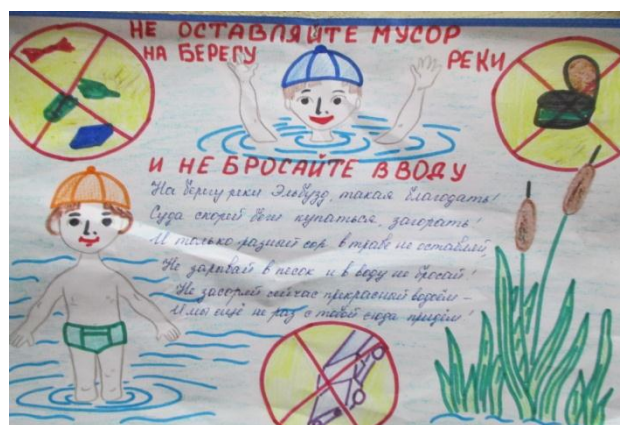 НЕ ОСТАВЛЯЙТЕ МУСОР
НА БЕРЕГУ РЕКИ
И НЕ БРОСАЙТЕ В ВОДУ
На берегу реки Эльбузд, такая благодать!
Сюда скорей беги купаться, загорать!
И только разный сор в траве не оставляй,
Не зарывай в песок и в воду не бросай!
Не засоряй сейчас прекрасный водоём –
И мы ещё не раз с тобой сюда придём!